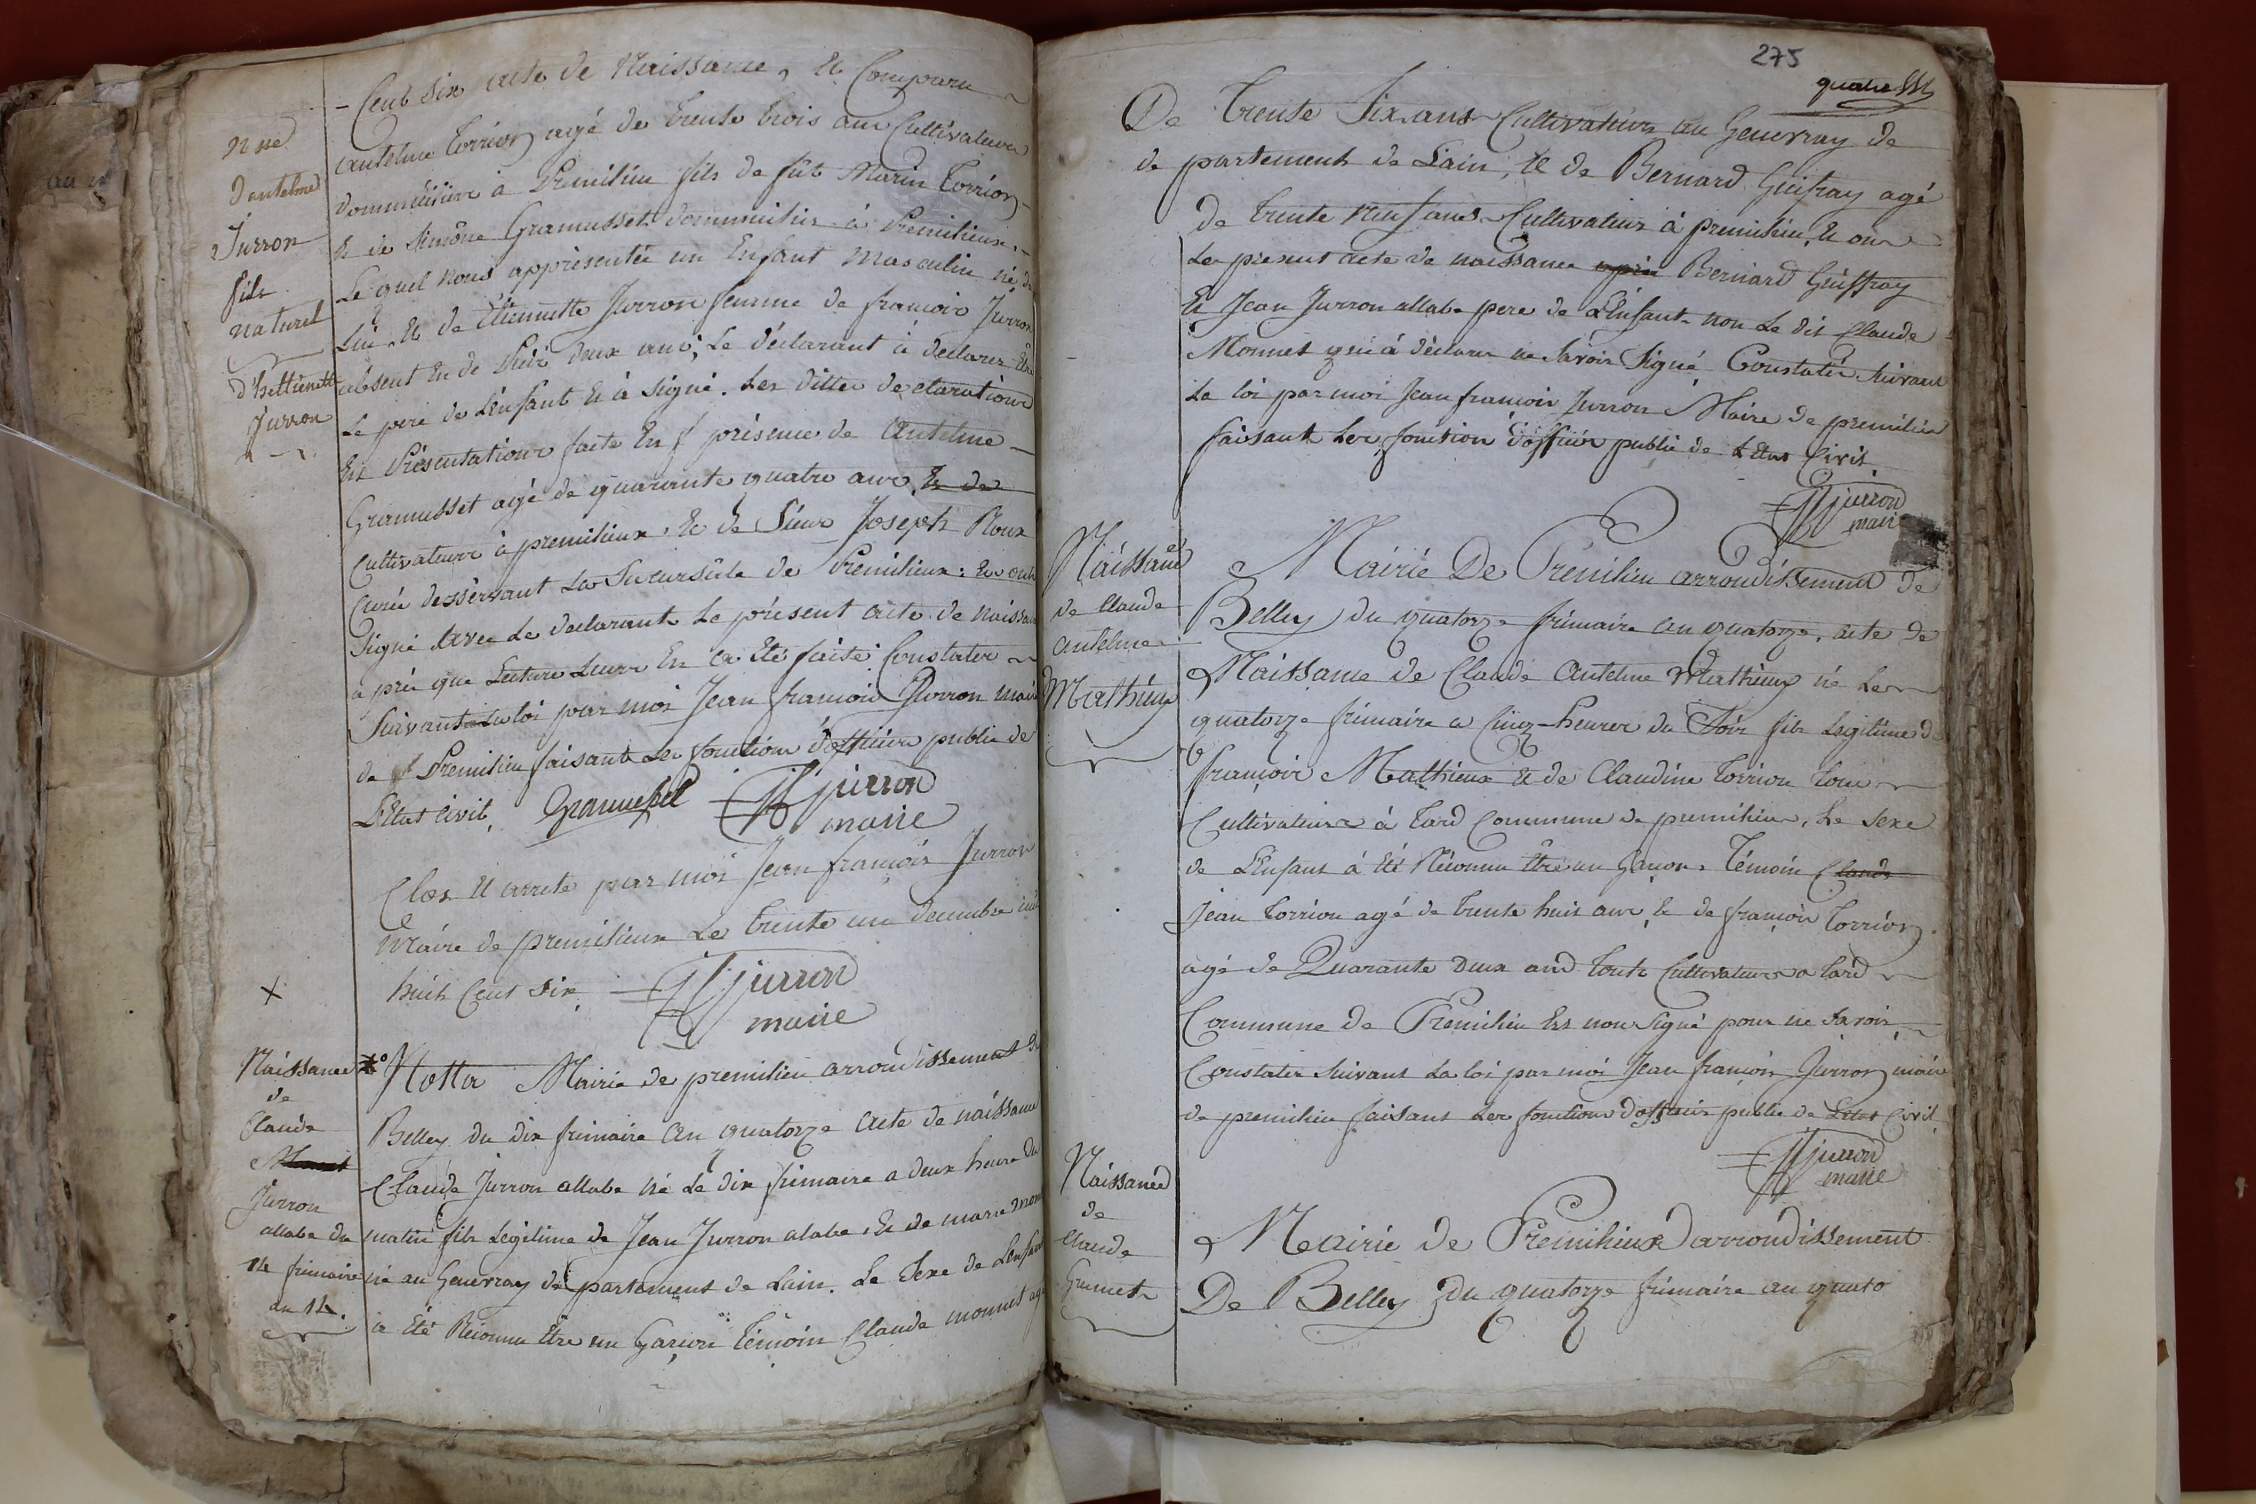 - Cent Six acte de Naissance, Et Comparu
Antelme Torrion agé de trente trois ans Cultivateur
Nee
d'antelme
Jurron
fils
naturel
d'hettienette
Jurron
Dommicilier à Premilieu fils de fût Marin Torrion
Et de Simône Gramusset dommicilier à Premilieux.
Le quel nous apprésentée un Enfant Masculin né de
Lui Et de Étiennette Jurron femme de françoir Jurron
absent En de Puir deux ans, Le déclarant à declarer Etre
Le pere de Lenfant Et à Signé. Les dittes declaration
Et Présentation faite En présence de Antelme
Gramusset agé de quarante quatre ans, Et de
Cultivateur à premilieux. Et de Sieur Joseph Roux
Curée dessèrvant La Sucursale de Prémilieux: Et ont
Signé Avec Le declarant Le présent acte de naissance
a prés que Lecture Leure En a Eté faite Constater
Suivant La loi par moi Jean françois Jurron maire
de Premilieu faisant Les fonctions d'officier public de
L'Etat Civil, Gramusset JfJurron
maire
Clos Et arreté par moi Jean françois Jurron
Maire de premilieux Le trente un decembre mil
huit Cent Six JfJurron
maire
×
Naissance
de
Claude
Monnet
Jurron
allabe du
14 frimaire
an 14.
Notta Mairie de premilieu arrondissement de
Belley du dix frimaire an quatorze acte de naissance
Claude Jurron allabe né Le dix frimaire a deux heure du
matin fils Légitime de Jean Jurron alabe, Et de marie monnet
né au Genevray de partement de Lain. Le Sexe de Lenfant
a Été Reconnu Etre un Garçon Témoin Claude monnet agé
275
quatre
De trente Six ans Cultivateur au Genevray de
de partement de L'ain, Et de Bernard Guifray agé
de trente neuf ans Cultivateur à premilieu, Et on
Le present acte de naissance après Bernard Guiffray
Et Jean Jurron allabe pere de L'Enfant non Le dit Claude
Monnet qui à declarer ne Savoir Signé Constatér Suivant
La loi par moi Jean françoir Jurron Maire de premilieu
faisant Les fonction d'officier public de L'Etat Civil.
JfJurron
maire
Naissance
de Claude
Antelme
Mathieux
Mairie De Premilieu arrondissement de
Belley du quatorze frimaire an quatorze, acte de
Naissance de Claude Antelme Mathieux né Le
quatorze frimaire a Cinq heures du Soir fils Legitime de
françoir Mathieux Et de Claudine Torrion tous
Cultivateur à tard Commune de premilieu, Le Sexe
de L'Enfant à Eté Réconnu Etre un Garçon. Témoin Claude
Jean Torrion agé de trente huit ans, Et de françoir Torrion
agé de Quarante Deux and touts Cultivateurs a tard
Commune de Premilieu Ets non Signé pour ne Savoir
Constater Suivant La loi par moi Jean françoir Jurron maire
de premilieu faisant Les fonctions d'officier public de Letat Civil
JfJurron
maire
Naissance
de
Claude
Grumet
Mairie de Premilieux D'arrondissement
De Belley du quatorze frimaire an quato